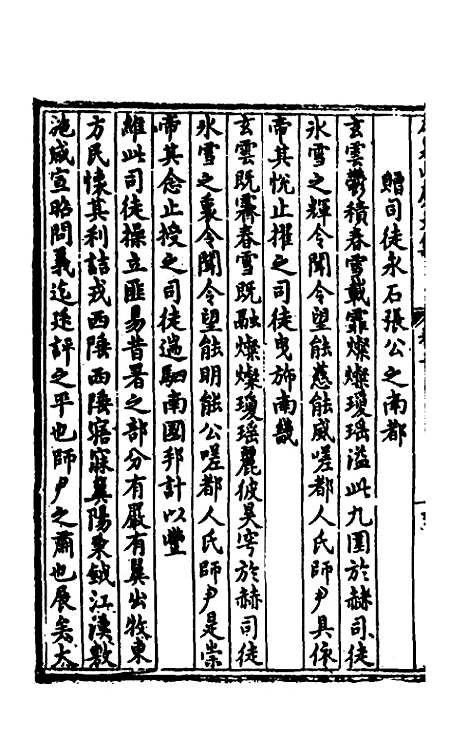 贈司徒水石張公之南都
玄雲鬱積春雪載霏燦燦瓊瑤溢此九圍於赫司徒
氷雪之輝令聞令望能慈能威嗟都人氏師尹具依
帝其悦止擢之司徒曳斾南畿
玄雲既霽春雪既融燦燦瓊瑶麗彼昊穹於赫司徒
氷雪之衷令聞令望能明能公嗟都人氏師尹是崇
帝其念止授之司徒遄駟南國邦計以豐
維此司徒操立匪易昔署之部分有嚴有翼出牧東
方民懐其利詰戎西陲西陲寤寐冀陽秉鉞江漢敷
施咸宣昭問義迄廷評之平也師尹之肅也展矣大